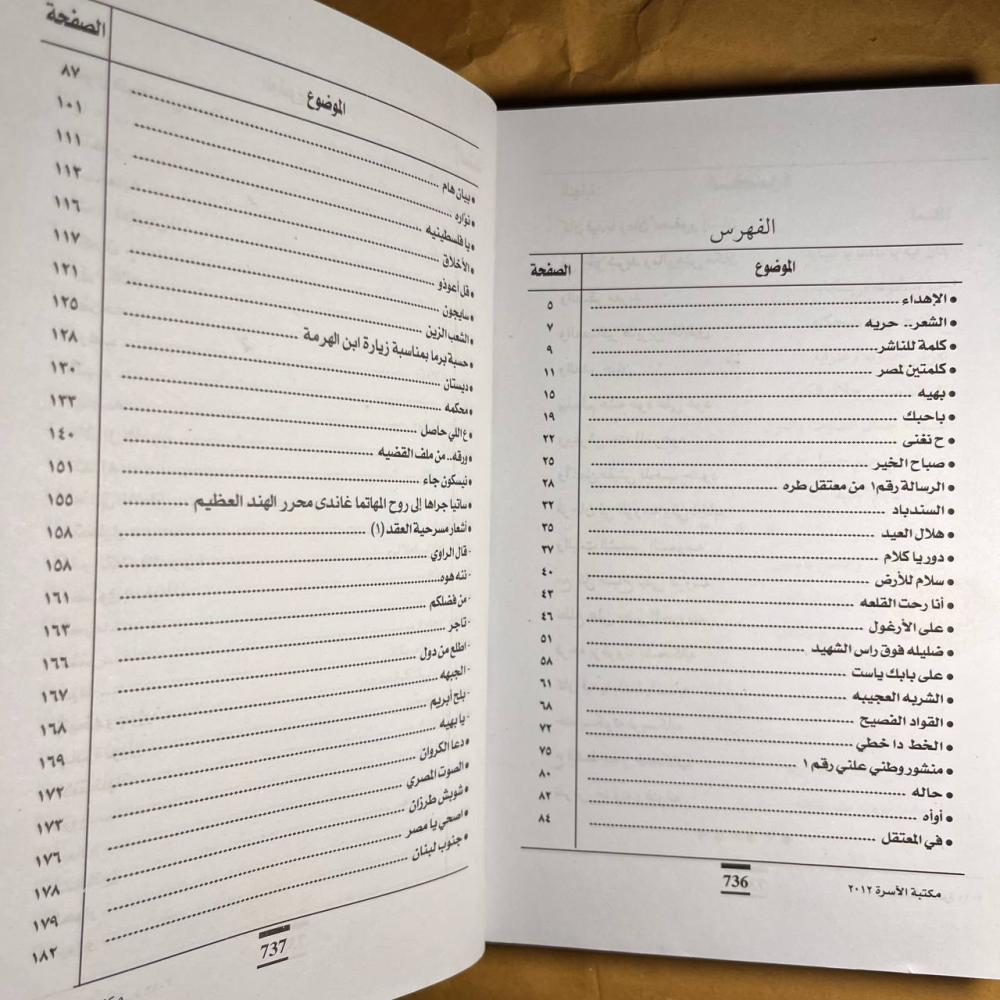 الفهرس
الموضوع الصفحة
• الإهداء ........ ٥
• الشعر.. حريه ........ ٧
• كلمة للناشر ........ ٩
• كلمتين لمصر ........ ١١
• بهيه ........ ١٥
• باحبك ........ ١٩
• ح نغنى ........ ٢٢
• صباح الخير ........ ٢٥
• الرسالة رقم ١ من معتقل طره ........ ٢٨
• السندباد ........ ٣٢
• هلال العيد ........ ٣٥
• دور يا كلام ........ ٣٧
• سلام للأرض ........ ٤٠
• أنا رحت القلعه ........ ٤٣
• على الأرغول ........ ٤٦
• ضليله فوق راس الشهيد ........ ٥١
• على بابك ياست ........ ٥٨
• الشربه العجيبه ........ ٦١
• القواد الفصيح ........ ٦٨
• الخط دا خطي ........ ٧٢
• منشور وطني علني رقم ١ ........ ٧٥
• حاله ........ ٨٠
• أوأه ........ ٨٢
• في المعتقل ........ ٨٤
736
مكتبة الأسرة ٢٠١٢
الموضوع الصفحة
• بيان هام ........ ٨٧
• نواره ........ ١٠١
• يا فلسطينيه ........ ١١١
• الأخلاق ........ ١١٣
• قل أعوذو ........ ١١٦
• سايجون ........ ١١٧
• الشعب الزين ........ ١٢١
• حسبة برما بمناسبة زيارة ابن الهرمة ........ ١٢٥
• ديستان ........ ١٢٨
• محكمه ........ ١٣٠
• ع اللي حاصل ........ ١٣٣
• ورقه.. من ملف القضيه ........ ١٤٠
• نيسكون جاء ........ ١٥١
• ساتيا جراها إلى روح المهاتما غاندى محرر الهند العظيم ........ ١٥٥
• أشعار مسرحية العقد (١) ........ ١٥٨
- قال الراوي ........ ١٥٨
- ننه هوه ........ ١٦١
- من فضلكم ........ ١٦٣
- تاجر ........ ١٦٦
- اطلع من دول ........ ١٦٧
- الجبهه ........ ١٦٨
- بلح أبريم ........ ١٦٩
- يا بهيه ........ ١٧٢
• دعا الكروان ........ ١٧٣
• الصوت المصري ........ ١٧٦
• شويش طرزان ........ ١٧٨
• اصحي يا مصر ........ ١٧٩
• جنوب لبنان ........ ١٨٢
737